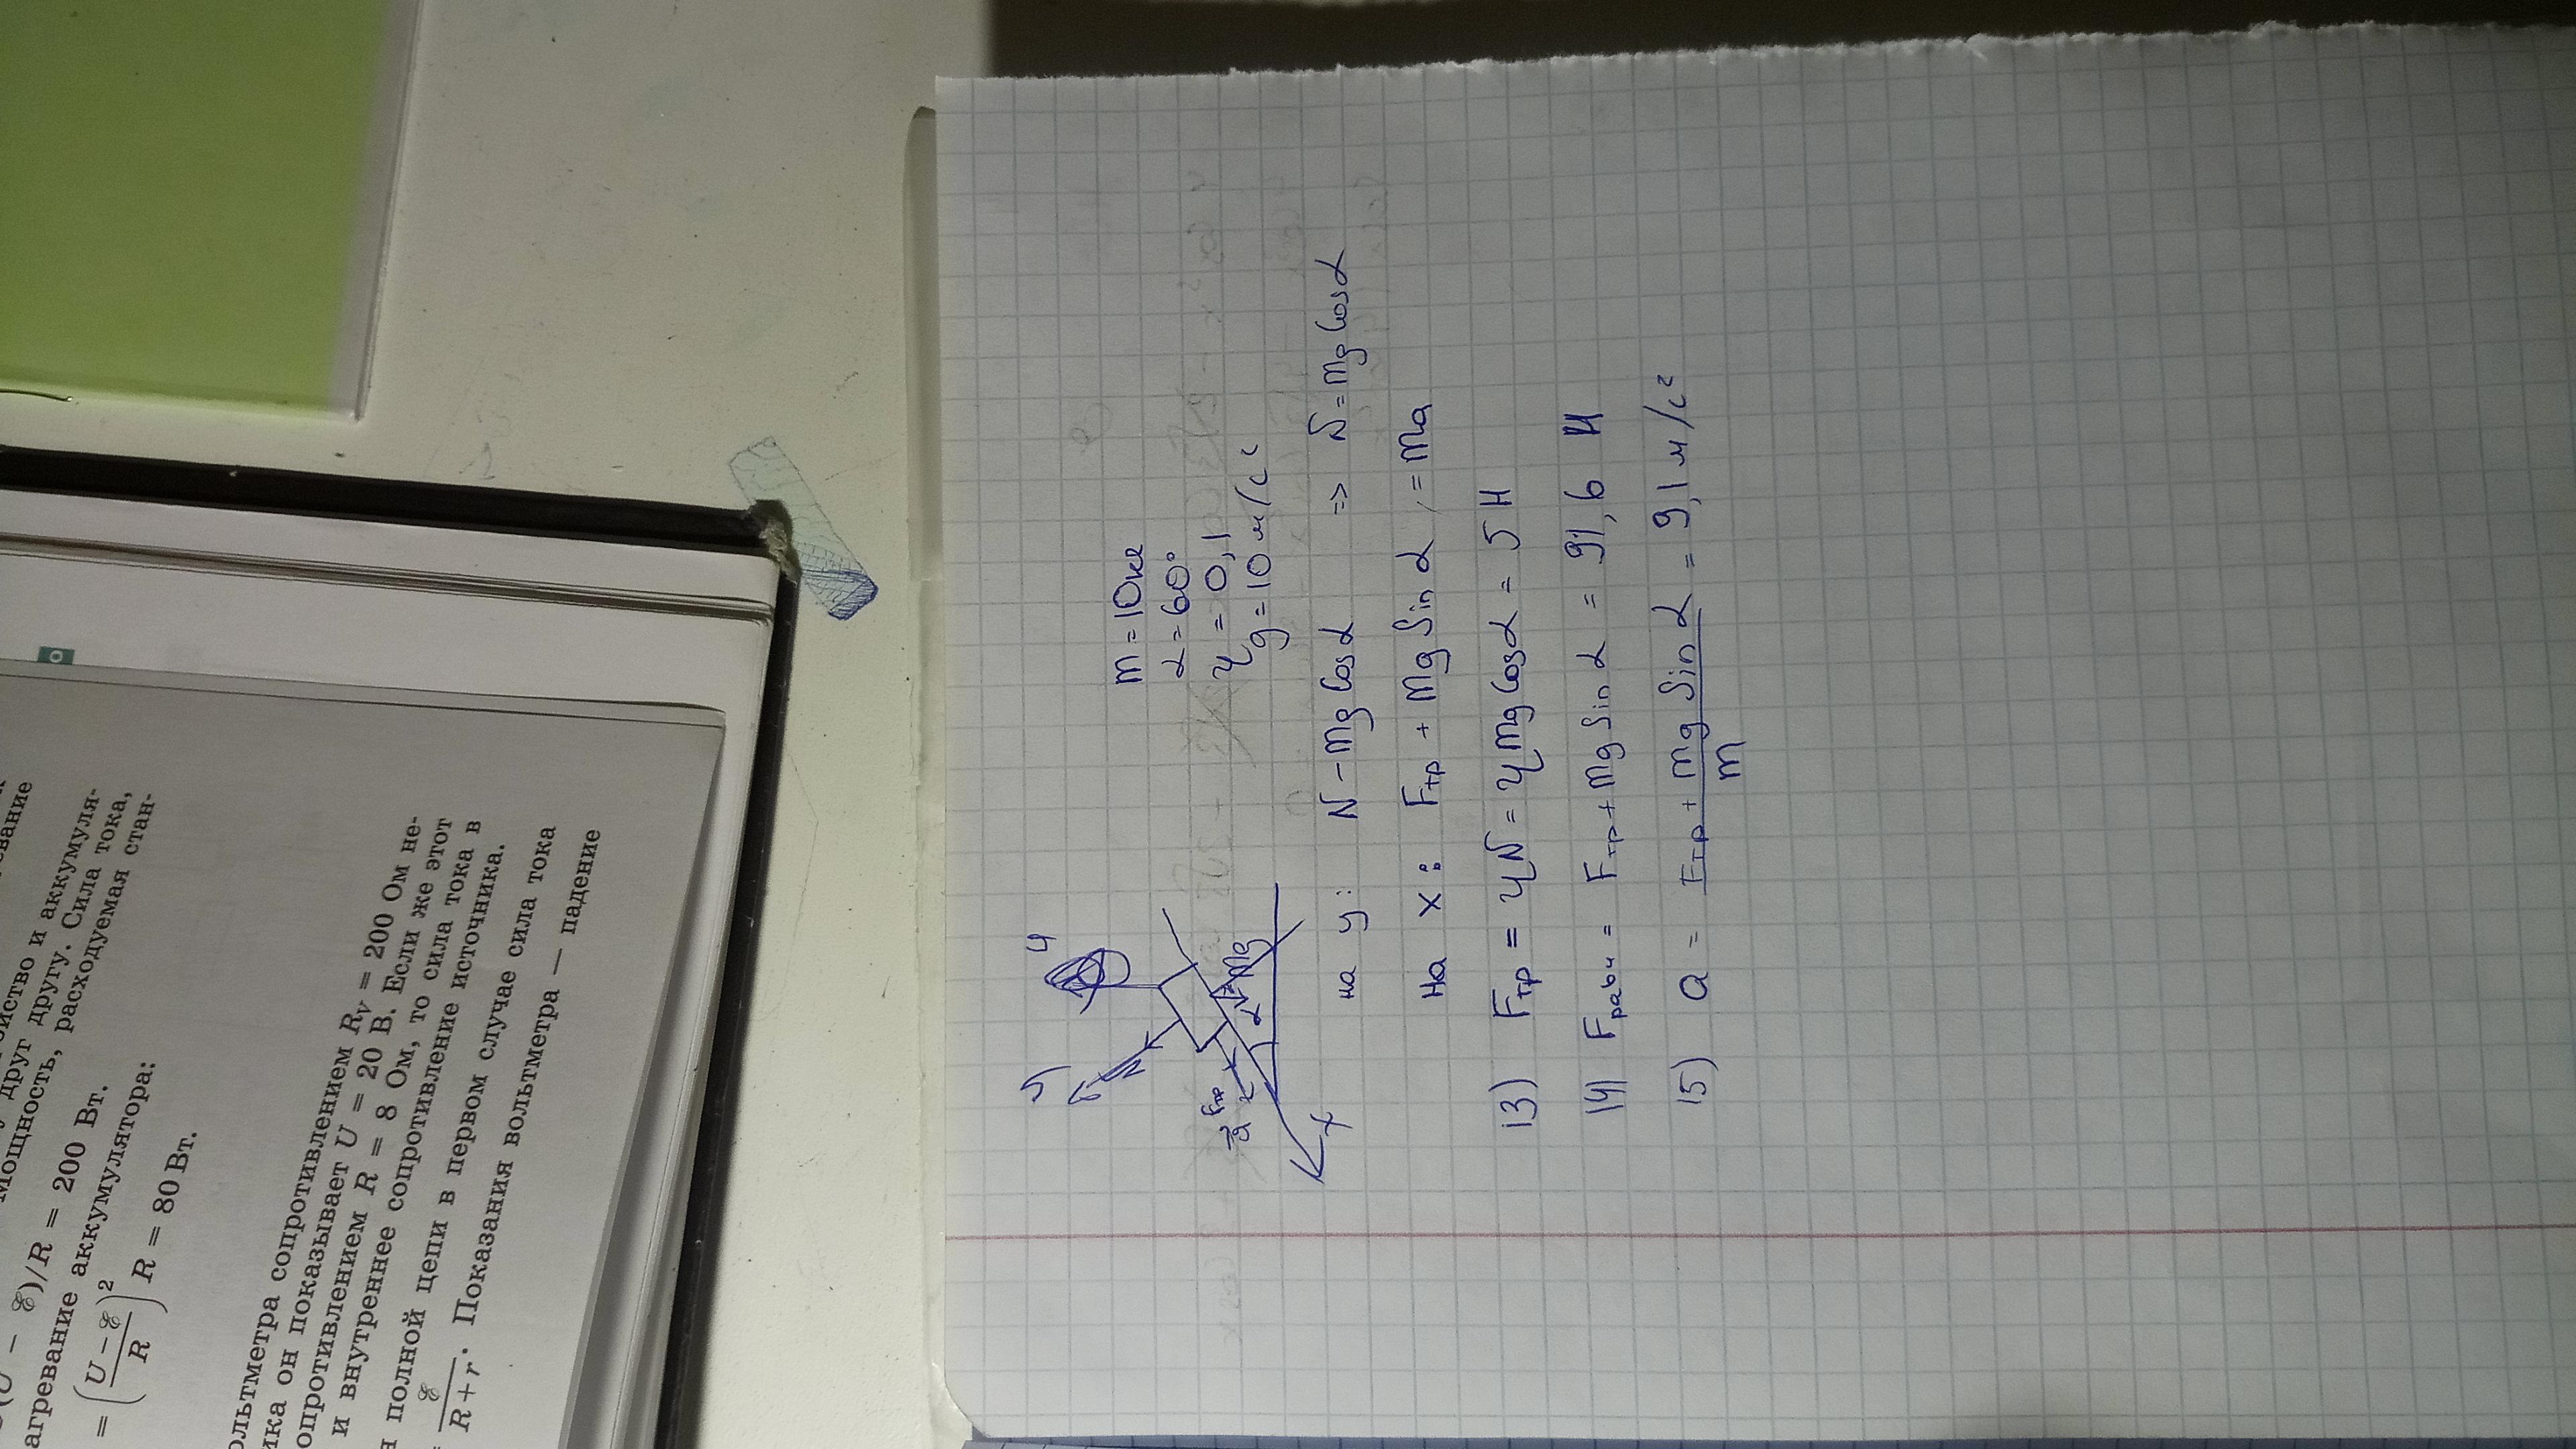 (U − ℰ)/R = 200 Вт.
агревание аккумулятора:
= (U − ℰ / R)² R = 80 Вт.
друг другу. Сила тока,
Мощность, расходуемая стан-
ольтметра сопротивлением R_V = 200 Ом не-
ика он показывает U = 20 В. Если же этот
опротивлением R = 8 Ом, то сила тока в
и внутреннее сопротивление источника.
н полной цепи в первом случае сила тока
= ℰ / R + r. Показания вольтметра — падение
m = 10 кг
α = 60°
μ = 0,1
g = 10 м/с²
y
N
Fтр
a
mg
α
x
на y: N − mg cosα => N = mg cosα
На x: Fтр + mg sin α = ma
13) Fтр = μN = μmg cosα = 5 Н
14) Fравн = Fтр + mg sin α = 91,6 Н
15) a = Fтр + mg sin α / m = 9,1 м/с²